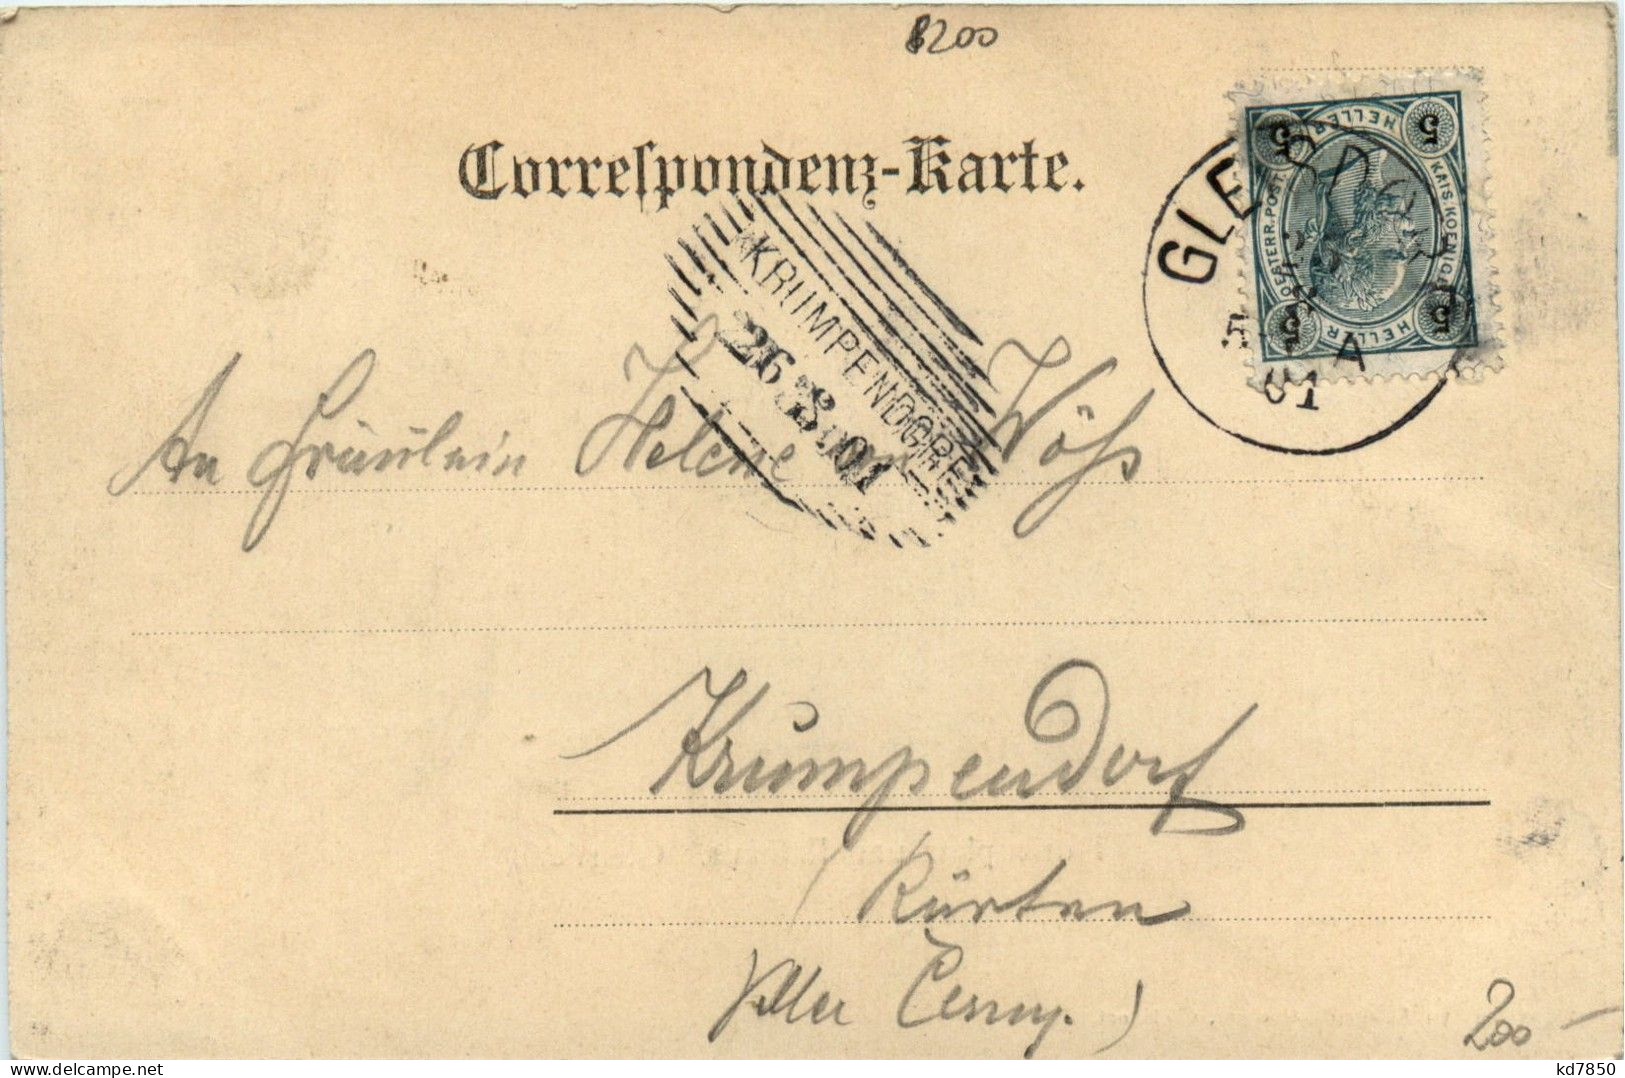 8200
Correspondenz-Karte.
5 HELLER 5
KAIS. KOENIGL. OESTERR. POST.
5 HELLER 5
GLEISDORF
A
KRUMPENDORF
26 8 01
An Fräulein Helene von Wöss
Krumpendorf
Kärnten
Villa Černy.)
200 -
kd7850